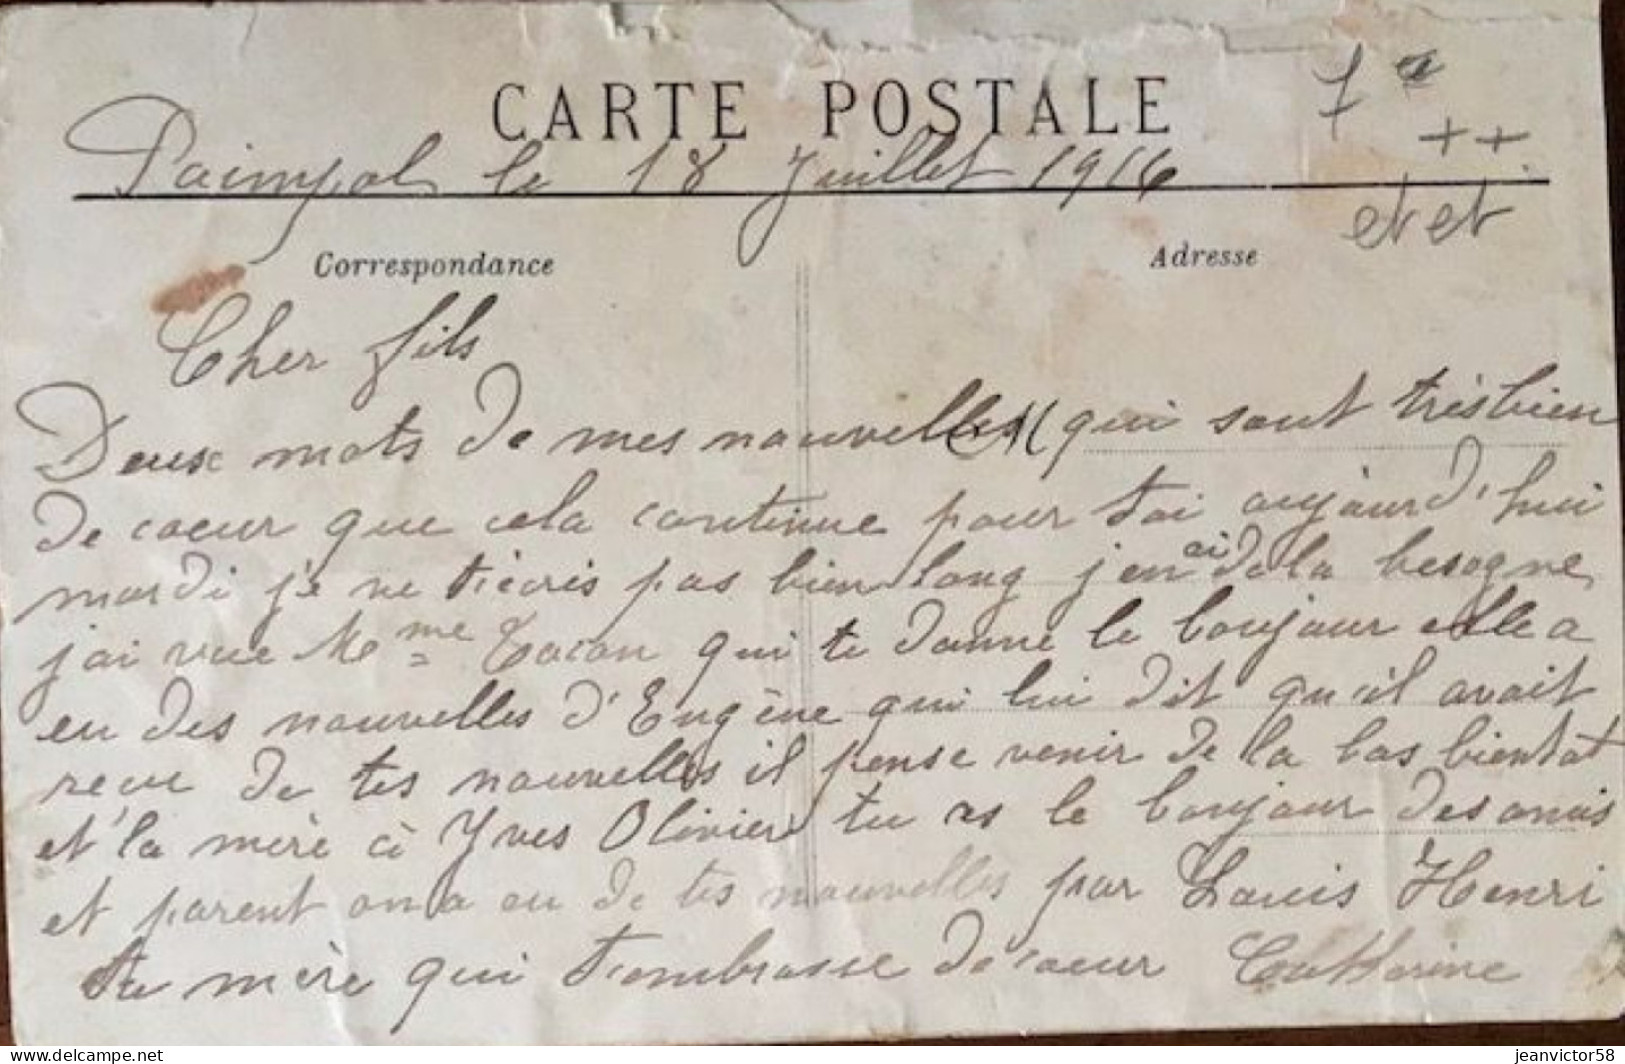 CARTE POSTALE
Paimpol le 18 Juillet 1916
et et
Correspondance
Adresse
Cher fils
Deux mots de mes nouvelles qui sont très bien
de coeur que cela continue pour toi aujourd'hui
mardi je ne t'ecris pas bien long j'en ai de la besogne
j'ai vue Mme qui te donne le boujour elle a
eu des nouvelles d'Eugène qui lui dit qu'il avait
recu de tes nouvelles il pense venir de la bas bientot
et la mère à Yves Olivier tu as le boujour des amis
et parent on a eu de tes nouvelles par Louis Henri
ta mère qui t'embrasse de coeur Catherine
jeanvictor58